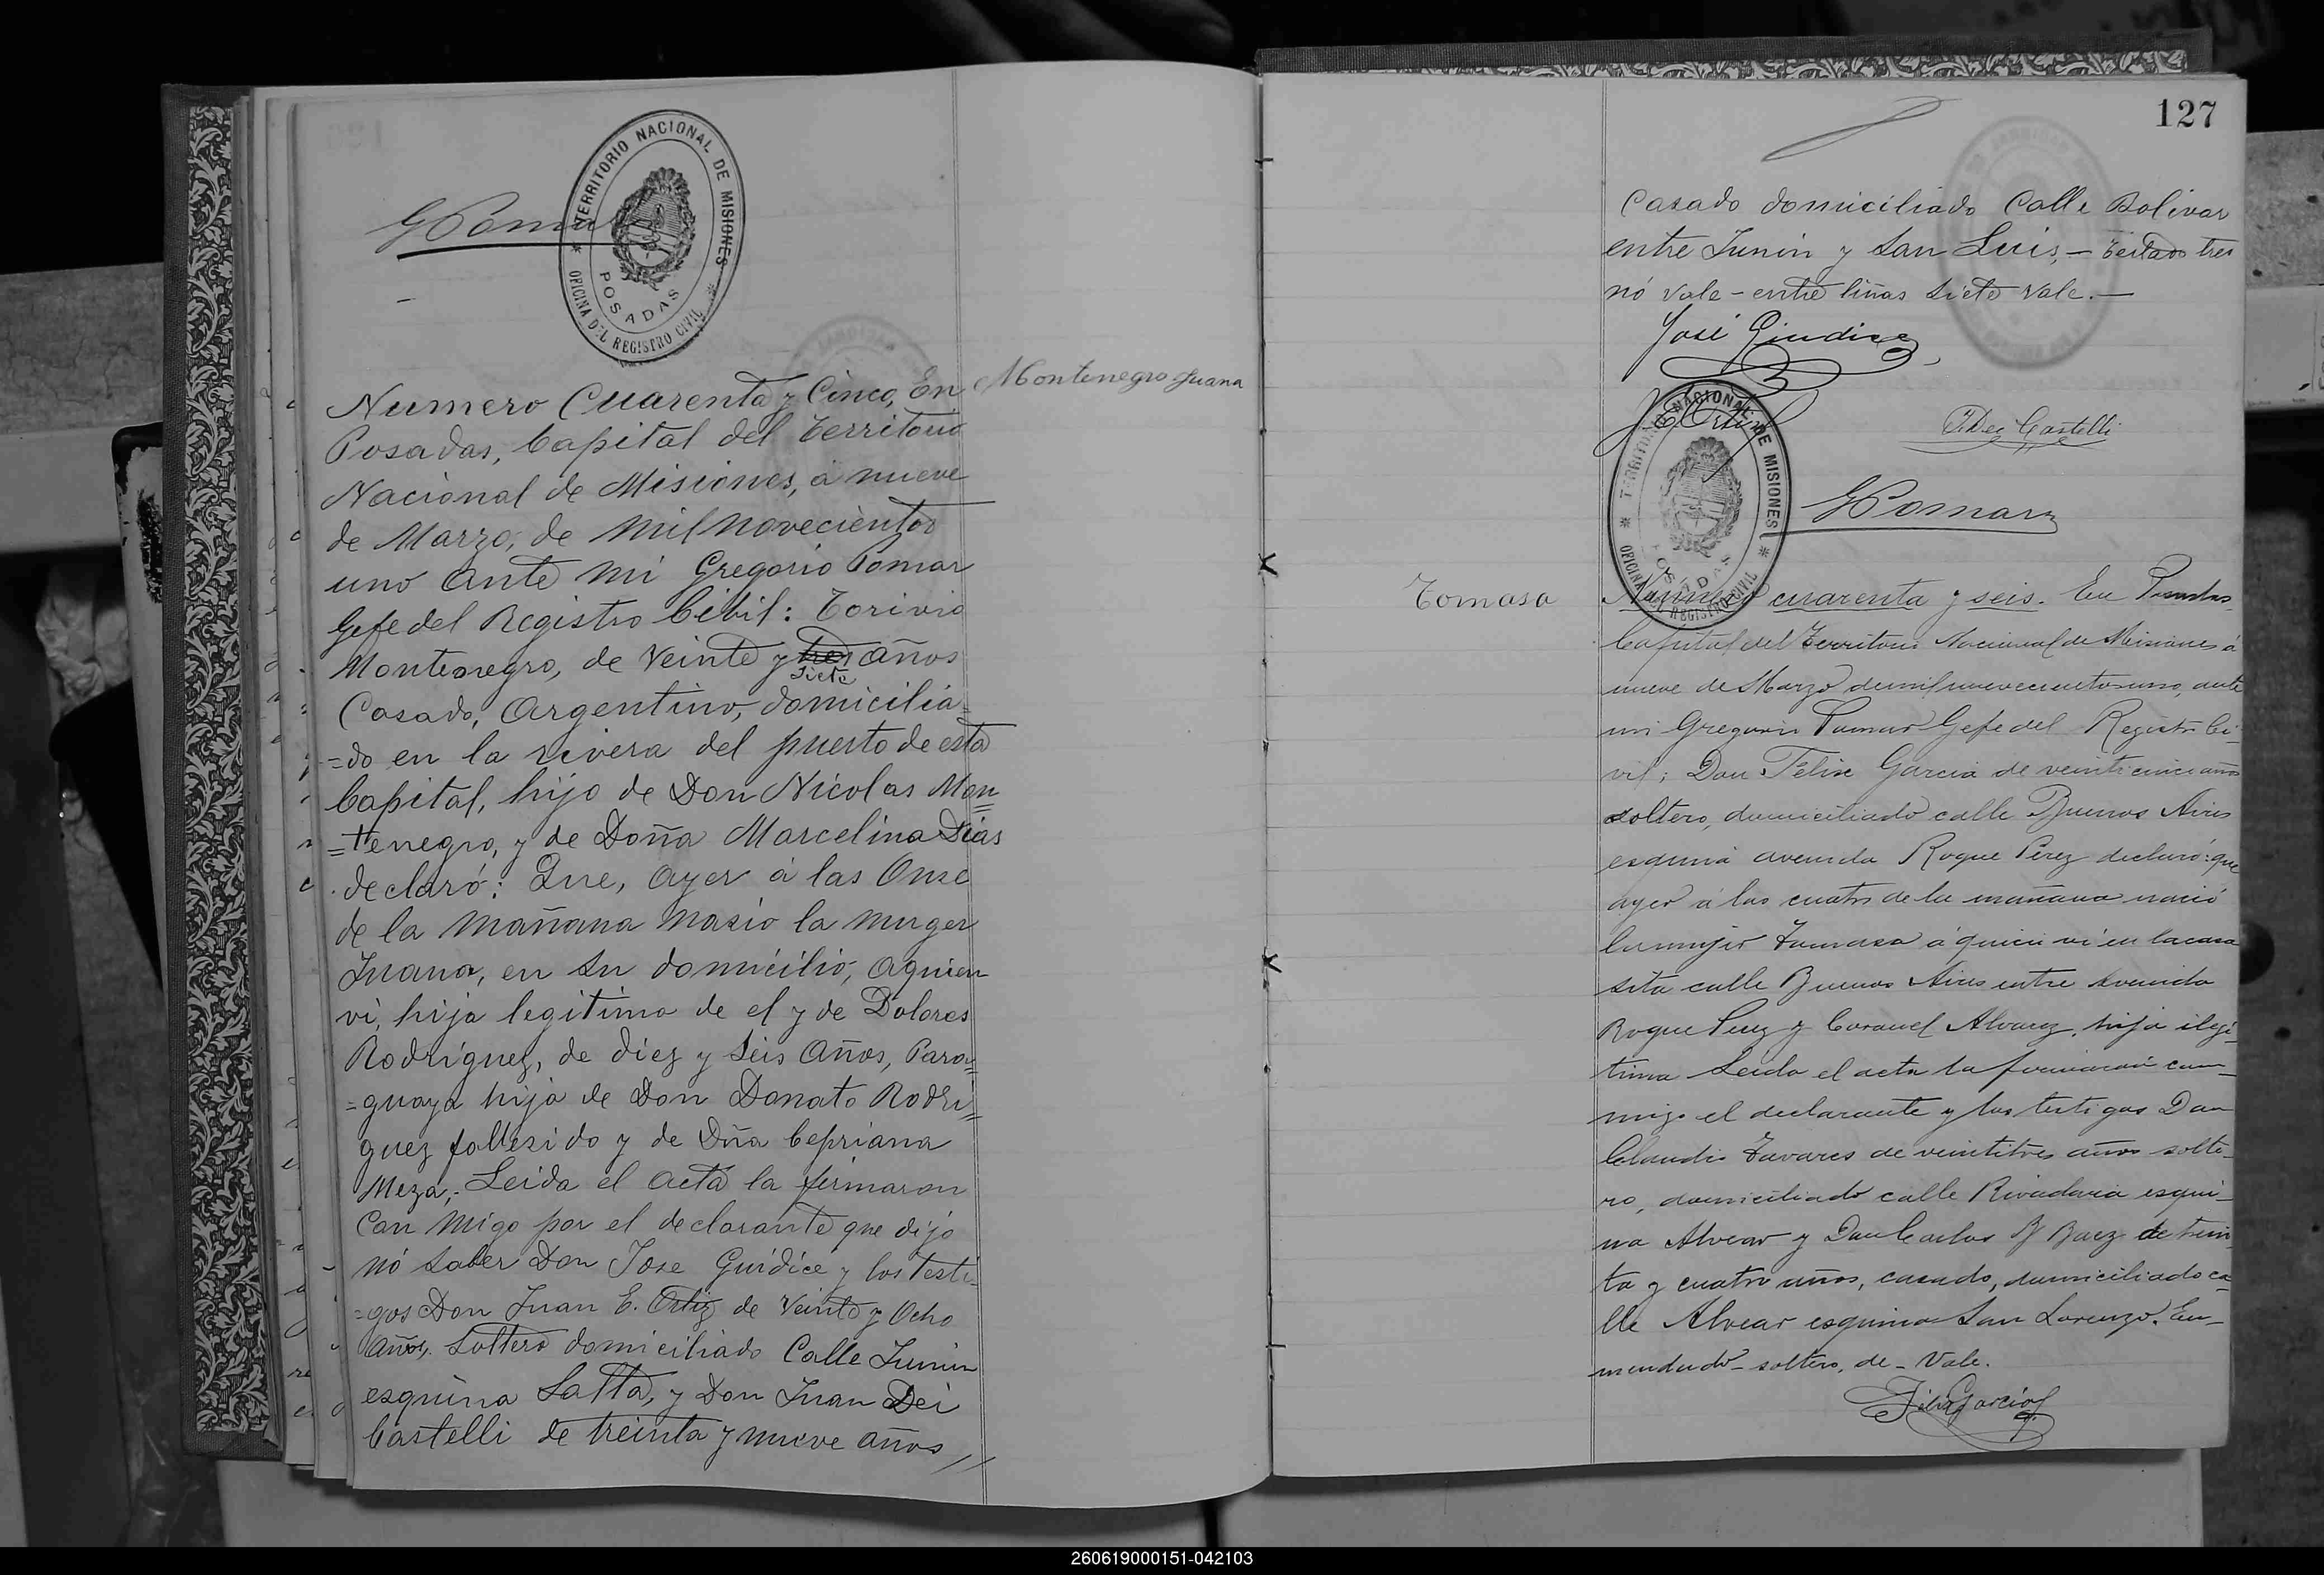 GPomar
TERRITORIO NACIONAL DE MISIONES
POSADAS
OFICINA DEL REGISTRO CIVIL
Montenegro Juana
Numero Cuarenta y Cinco, En
Posadas, Capital del Territorio
Nacional de Misiones, á nueve
de Marzo, de mil novecientos
uno ante mi Gregorio Pomar
Gefe del Registro Cibil: Torivio
Montenegro, de veinte y tres años
siete
Casado, Argentino, domicilia=
=do en la rivera del puerto de esta
Capital, hijo de Don Nicolas Mon=
=tenegro, y de Doña Marcelina Dias
declaró: Que, ayer á las Onse
de la mañana nasio la muger
Juana, en su domicilio, aquien
vi, hija legitima de el y de Dolores
Rodriguez, de diez y seis años, Para=
=guaya hija de Don Donato Rodri=
guez fallesido y de Dña Cepriana
Meza,- Leida el acta la firmaron
con migo por el declarante que dijo
nó saber Don Jose Guidice y los testi=
=gos Don Juan E. Ortiz de veinte y ocho
años, soltero domiciliado Calle Junin
esquina Salta, y Don Juan Dei
Castelli de treinta y nueve años //
127
Casado domiciliado Calle Bolivar
entre Junin y San Luis,- testado tres
nó vale - entre liñas siete vale.-
José Giudice
JEOrtiz
Dei Castelli
TERRITORIO NACIONAL DE MISIONES
POSADAS
OFICINA DEL REGISTRO CIVIL
GPomar
Tomasa
Numero cuarenta y seis. En Posadas
Capital del Territorio Nacional de Misiones á
nueve de Marzo de mil novecientos uno, ante
mi Gregorio Pomar Gefe del Registro Ci-
vil; Don Felix Garcia de veinticinco años
soltero, domiciliado calle Buenos Aires
esquina avenida Roque Perez declaró: que
ayer á las cuatro de la mañana nació
la mujer Tomasa á quien ví en la casa
sita calle Buenos Aires entre avenida
Roque Perez y Coronel Alvarez, hija ilegi-
tima Leida el acta la firmaron con-
migo el declarante y los testigos Don
Claudio Tavares de veintitres años solte-
ro, domiciliado calle Rivadavia esqui-
na Alvear y Don Carlos B Baez de trein-
ta y cuatro años, casado, domiciliado ca-
lle Alvear esquina San Lorenzo. En-
mendado - soltero, de - Vale.
Felix Garcia
260619000151-042103